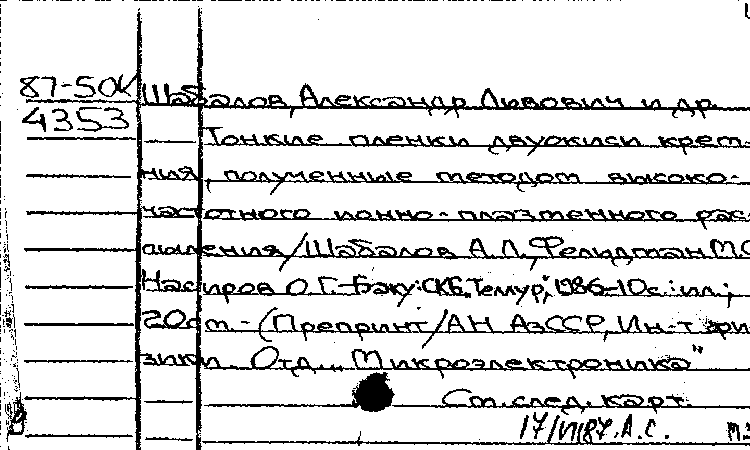 87-50К
4353
Шабалов, Александр Львович и др.
Тонкие пленки двуокиси крем-
ния, полученные методом высоко-
частотного ионно-плазменного рас-
пыления/Шабалов А.Л., Фельдман М.С.
Насиров О.Г.-Баку: СКБ "Темур", 1986-10с.: ил.;
20см.-(Препринт/АН АзССР, Ин-т фи-
зики. Отд. "Микроэлектроника"
См. след. карт.
17/VII87. А.С.